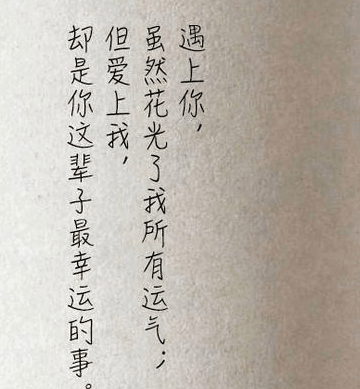 遇上你，
虽然花光了我所有运气；
但爱上我，
却是你这辈子最幸运的事。